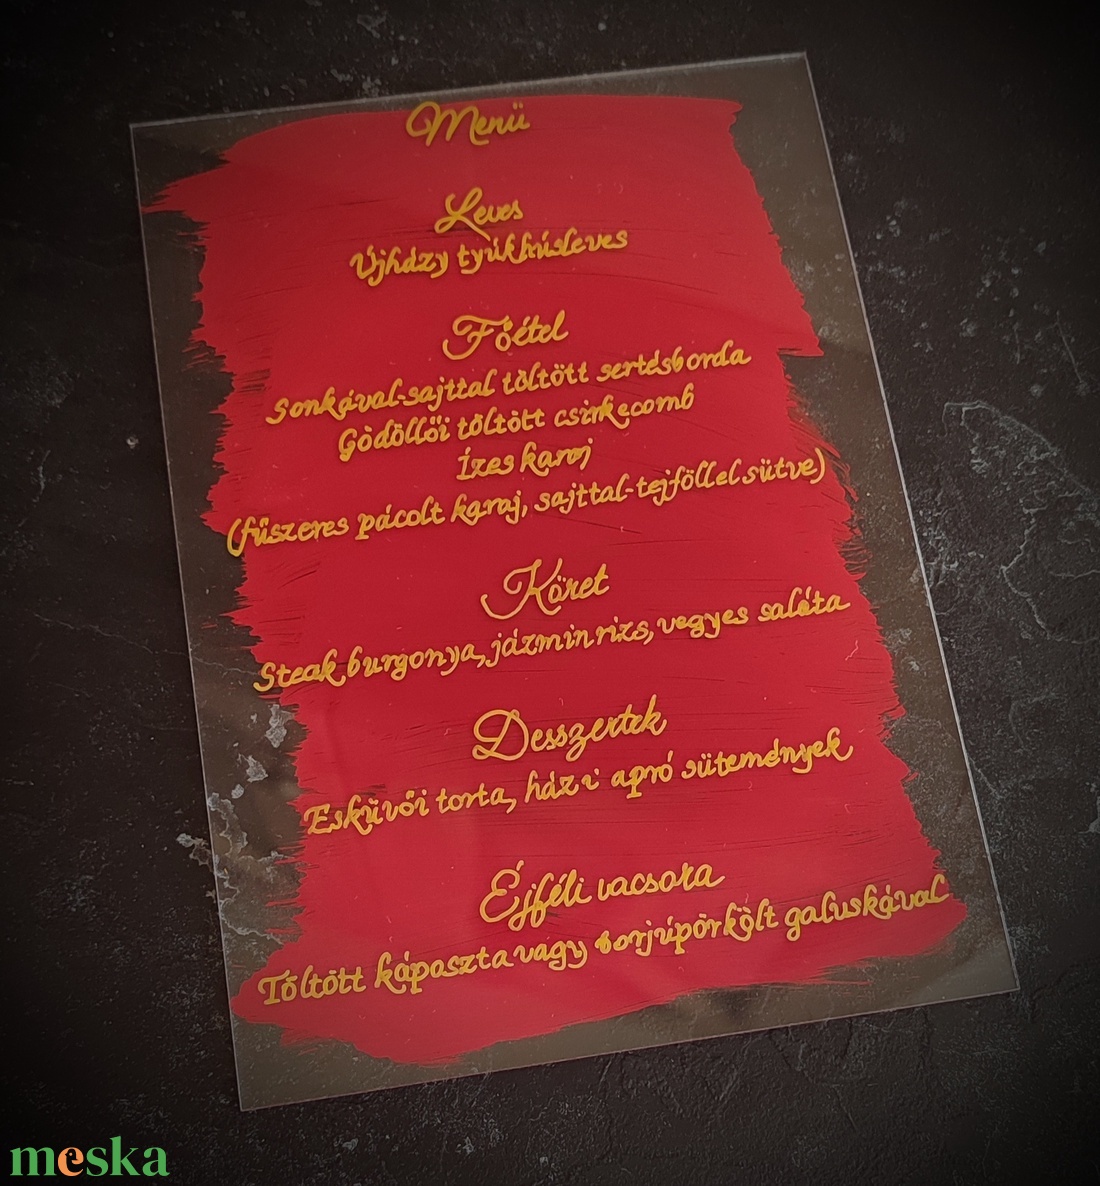 Menü
Leves
Újházy tyúkhúsleves
Főétel
Sonkával-sajttal töltött sertésborda
Gödöllői töltött csirkecomb
Ízes karaj
(fűszeres pácolt karaj, sajttal-tejföllel sütve)
Köret
Steak burgonya, jázmin rizs, vegyes saláta
Desszertek
Esküvői torta, házi apró sütemények
Éjféli vacsora
Töltött káposzta vagy borjúpörkölt galuskával
meska